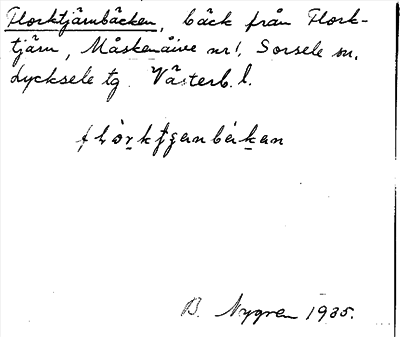 Florktjärnbäcken, bäck från Flork-
tjärn, Måskenåive nr 1, Sorsele sn,
Lycksele tg. Västerb. l.
B. Nygren 1935.